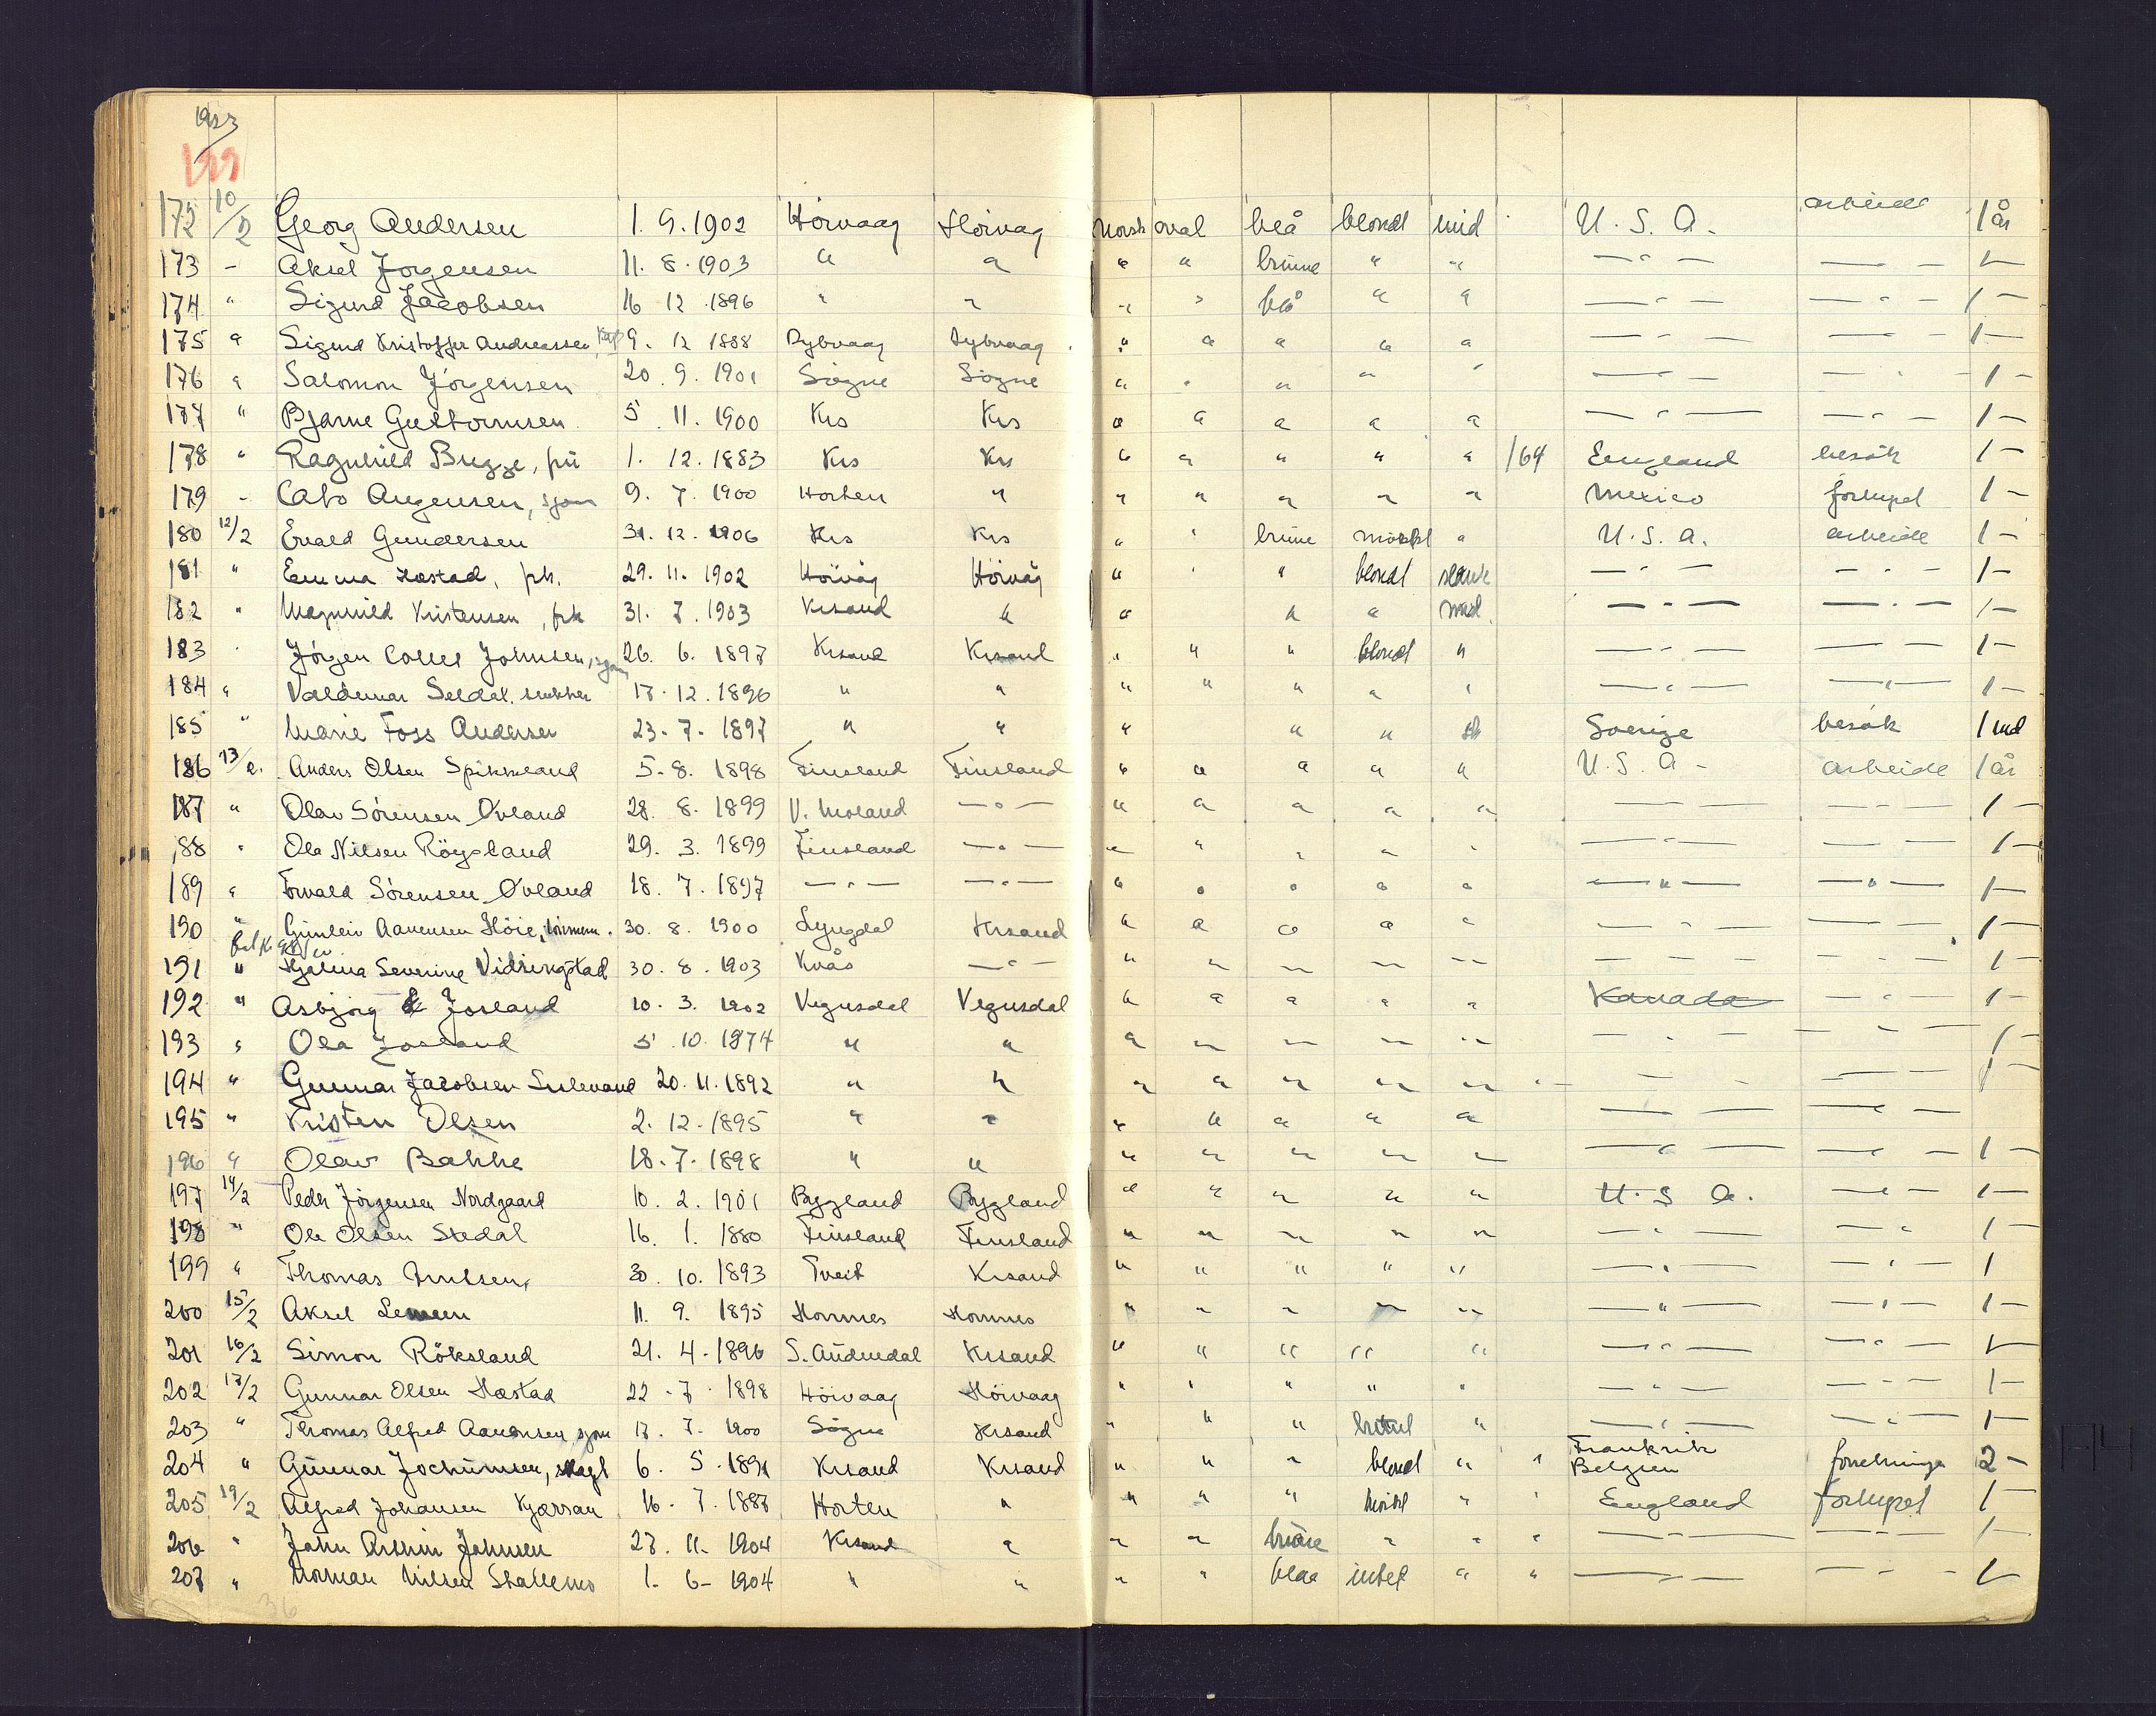 1923
172 10/2 Georg Andersen 1. 9. 1902 Hörvaag Hörvag norsk oval blå blondt mid U. S. A. arbeide 1 år
173 - Aksel Jörgensen 11. 8. 1903 " " " " brune " " — " — — " — 1 —
174 " Sigurd Jacobsen 16 12 . 1896 " " " " blå " " — " — — " — 1 —
175 " Sigurd Kristoffer Andreassen, 9. 12 1888 Dybvaag Dybvaag " " " " " — " — — " — 1 —
176 " Salomon Jörgensen 20. 9. 1901 Sögne Sögne " " " " " — " — — " — 1 —
177 " Bjarne Guttormsen 5. 11. 1900 Krs Krs " " " " " — " — — " — 1 —
178 " Ragnhild Bugge, frü 1. 12. 1883 Krs Krs " " " " " 164 England besök 1 —
179 - Cato Augensen, sjøm 9. 7. 1900 Horten " " " " " " Mexico forhyret 1 —
180 12/2 Evald Gundersen 31. 12. 1906 Krs Krs " " brune mörkt " U. S. A. arbeide 1 —
181 " Emma Hæstad, frk. 29. 11. 1902 Höivåg Höivåg " " " blondt slank — " — — " — 1 —
182 " Magnhild Kristensen, frk 31. 7. 1903 Krsand " " " " mid. — " — — " — 1 —
183 " Jörgen Johnsen, sjøm 26. 6. 1897 Krsand Krsand " " " blondt " — " — — " — 1 —
184 " Valdemar Seldal. 17. 12. 1896 " " " " " " " — " — — " — 1 —
185 " Marie Foss Andersen 23. 7. 1897 " " " " " Sverige besök 1 md
186 13/2. Anders Olsen Spikkeland 5. 8. 1898 Finsland Finsland " " " " " U. S. A - arbeide 1 år
187 " Olav Sörensen Øvland 28. 8. 1899 V. Moland — " — " " " " " — " — — " — 1 —
188 " Ola Nilsen Röysland 29. 3. 1899 Finsland — " — " " " " " — " — — " — 1 —
189 " Torvald Sörensen Øvland 18. 7. 1897 — " — — " — " " " " " — " — — " — 1 —
190 " Gunleiv Aanensen Höie, 30. 8. 1900 Lyngdal Krsand " " " " " — " — — " — 1 —
191 " Hjalma Severine Vidringstad 30. 8. 1903 Kvås — " — " " " " " — — — — — — 1 —
192 " Asbjörg Josland 10. 3. 1902 Vegusdal Vegusdal " " " " " Kanada — " — 1 —
193 " Ola Josland 5. 10. 1874 " " " " " " " — " — — " — 1 —
194 " Gunnar Jacobsen 20. 11. 1892 " " " " " " " — " — — " — 1 —
195 " Kristen Olsen 2. 12. 1895 " " " " " " " — " — — " —
196 " Olav Bakke 18. 7. 1898 " " " " " " " — " — — " — 1 —
197 14/2 Peder Jörgensen Nordgaard 10. 2. 1901 Bygland Bygland " " " " " U. S. A. — " — 1 —
198 " Ole Olsen Stedal 16. 1. 1880 Finsland Finsland " " " " " — " — — " — 1 —
199 " Thomas Knutsen 30. 10. 1893 Tveit Krsand " " " " " — " — — " — 1
200 15/2 Aksel 11. 9. 1895 Hommes Hommes " " " " " — " — — " — 1 —
201 16/2 Simon Röksland 21. 4. 1896 S. Audnedal Krsand " " " " " — " — — " — 1 —
202 17/2 Gunnar Olsen Hæstad 22. 7. 1898 Höivaag Höivaag " " " " " — " — — " — 1 —
203 " Thomas Alfred Aanensen sjøm 17. 7. 1900 Sögne Krsand " " " " — " — — " — 1 —
204 " Gunnar Jochumsen, 6. 5. 1891 Krsand Krsand " " " blondt " " Frankrik
Belgien forretninger 2 —
205 19/2 Alfred Johansen Kjærran 16. 7. 1887 Horten " " " " mörkt " " England forhyret 1 —
206 " John Arthur Johnsen 27. 11. 1904 Krsand " " " brune " " " — " — — " — 1 —
207 " Norman Nilsen Stallemo 1. 6 - 1904 " " " " blaa intet " " — " — — " — 1 —
36